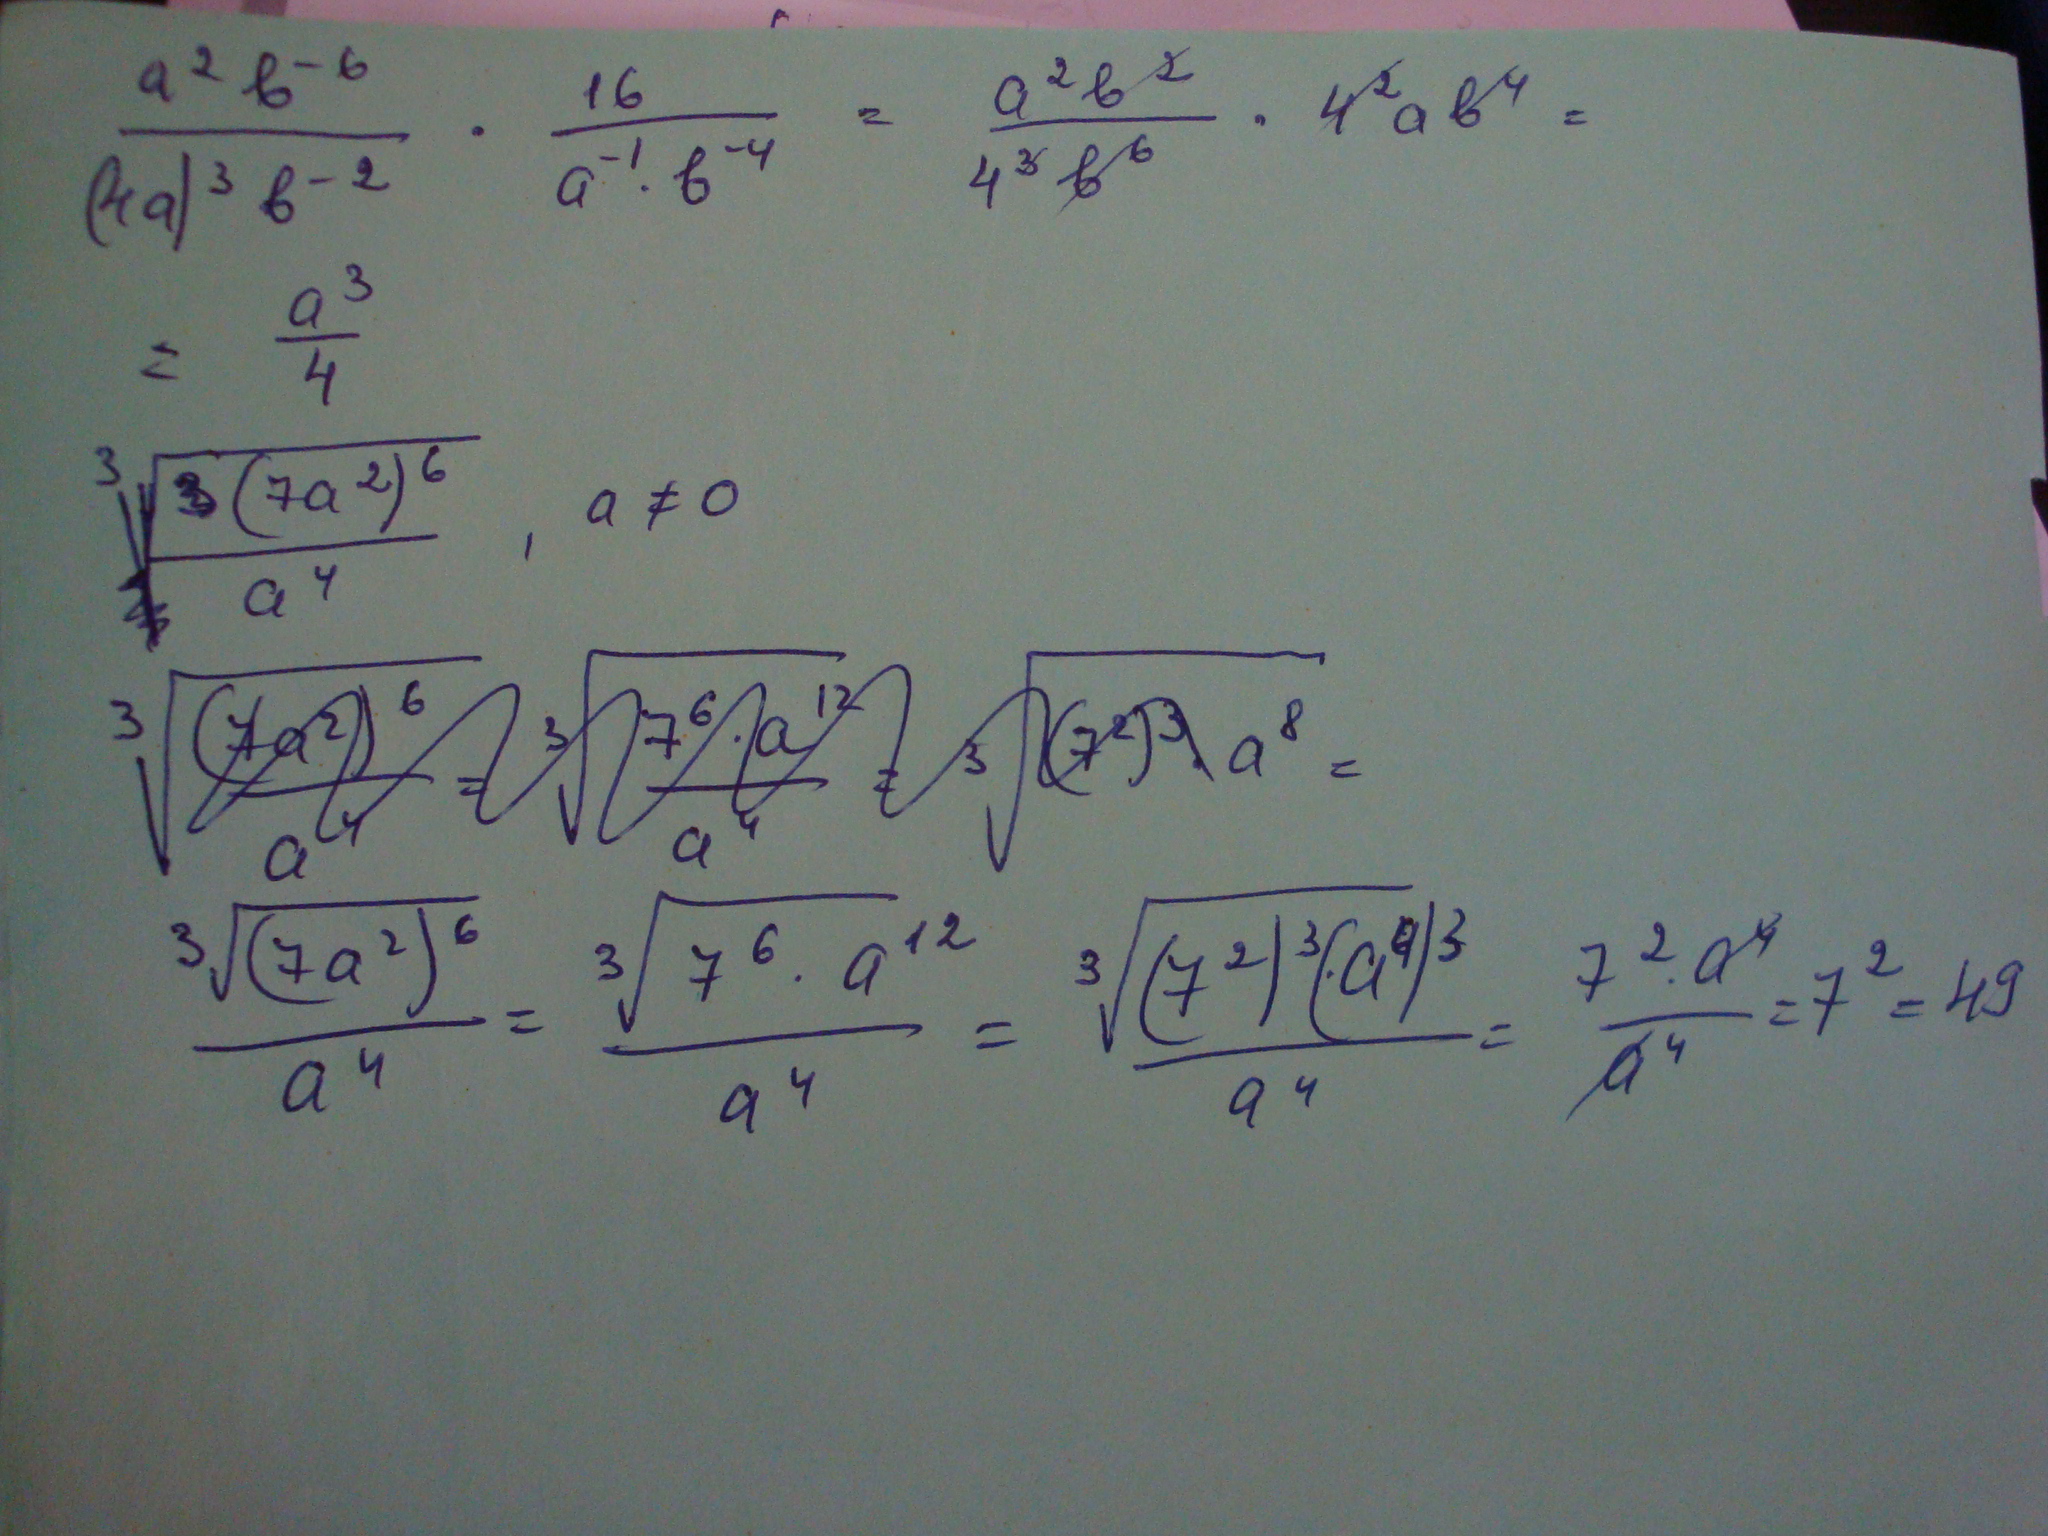 a² b⁻⁶ / (4a)³ b⁻² · 16 / a⁻¹ · b⁻⁴ = a² b² / 4³ b⁶ · 4² a b⁴ =
= a³ / 4
³√(7a²)⁶ / a⁴ , a ≠ 0
³√((7a²)⁶ / a⁴) = ³√(7⁶ · a¹² / a⁴) = ³√((7²)³ · a⁸) =
³√(7a²)⁶ / a⁴ = ³√7⁶ · a¹² / a⁴ = ³√(7²)³ · (a⁴)³ / a⁴ = 7² · a⁴ / a⁴ = 7² = 49